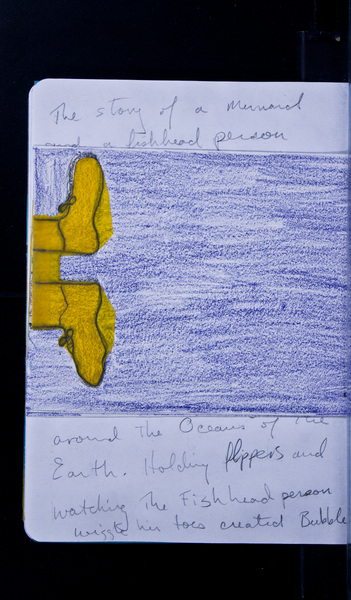 The story of a Mermaid
and a fishhead person
around The Oceans of The
Earth. Holding flippers and
watching The Fishhead person
wiggle her toes created Bubble